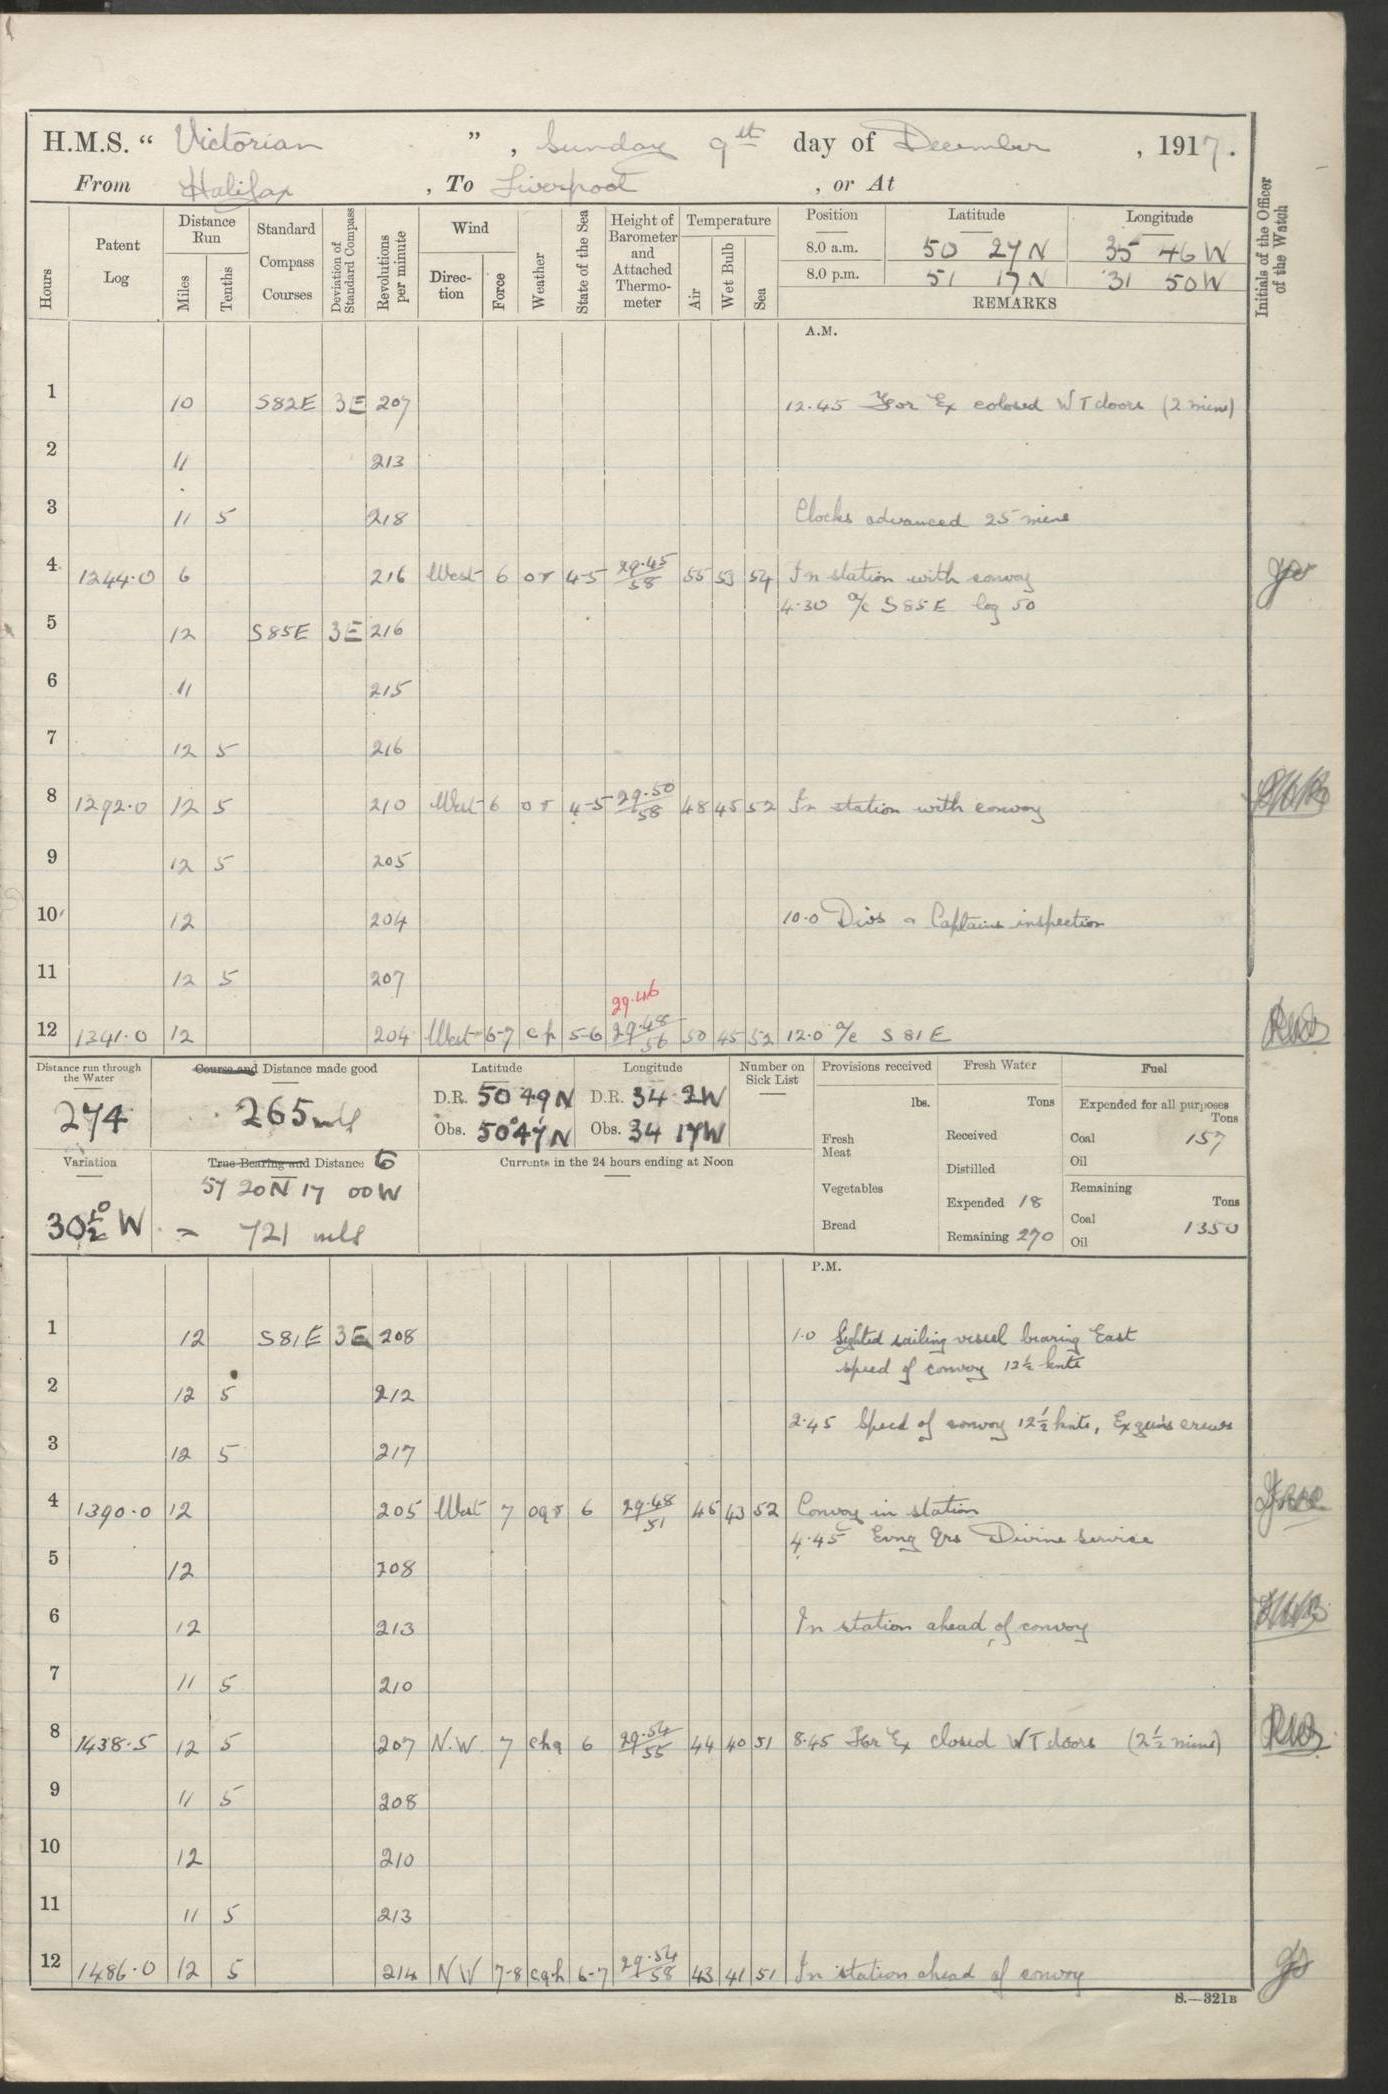 H.M.S. “ Victorian ” , Sunday 9th day of December , 1917.
From Halifax , To Liverpool , or At
Hours
Patent Log
Distance Run
Miles
Tenths
Standard Compass Courses
Deviation of Standard Compass
Revolutions per minute
Wind
Direction
Force
Weather
State of the Sea
Height of Barometer and Attached Thermometer
Temperature
Air
Wet Bulb
Sea
Position Latitude Longitude
8.0 a.m. 50 27 N 35 46 W
8.0 p.m. 51 17 N 31 50 W
REMARKS
Initials of the Officer of the Watch
A.M.
1 10 S82E 3E 207 12.45 For Ex colosed W T doors (2 mins)
2 11 213
3 11 5 218 Clocks advanced 25 mins
4 1244.0 6 216 West 6 or 4-5 29.45 58 55 53 54 In station with convoy
4.30 a/c S85E log 50
5 12 S85E 3E 216
6 11 215
7 12 5 216
8 1292.0 12 5 210 West 6 or 4-5 29.50 58 48 45 52 In station with convoy
9 12 5 205
10 12 204 10.0 Divs & Captains inspection
11 12 5 207
29.46
12 1341.0 12 204 West 6-7 cp 5-6 29.48 56 50 45 52 12.0 a/c S 81 E
Distance run through the Water
274
Course and Distance made good
265 mls
Latitude
D.R. 50 49 N
Obs. 50 47 N
Longitude
D.R. 34 2 W
Obs. 34 17 W
Number on Sick List
Provisions received
lbs.
Fresh Meat
Vegetables
Bread
Fresh Water
Tons
Received
Distilled
Expended 18
Remaining 270
Fuel
Expended for all purposes
Tons
Coal 157
Oil
Remaining
Tons
Coal 1350
Oil
Variation
30½° W
True Bearing and Distance to
57 20 N 17 00 W
= 721 mls
Currents in the 24 hours ending at Noon
P.M.
1 12 S81E 3E 208 1.0 Sighted sailing vessel bearing East
speed of convoy 12½ knts
2 12 5 212
2.45 Speed of convoy 12½ knts, Ex guns crews
3 12 5 217
4 1390.0 12 205 West 7 oqr 6 29.48 51 45 43 52 Convoy in station
4.45 Evng Qrs Divine Service
5 12 208
6 12 213 In station ahead of convoy
7 11 5 210
8 1438.5 12 5 207 N.W 7 chq 6 29.54 55 44 40 51 8.45 For Ex closed W T doors (2½ mins)
9 11 5 208
10 12 210
11 11 5 213
12 1486.0 12 5 214 NW 7-8 cqh 6-7 29.54 58 43 41 51 In station ahead of convoy
S.—321B